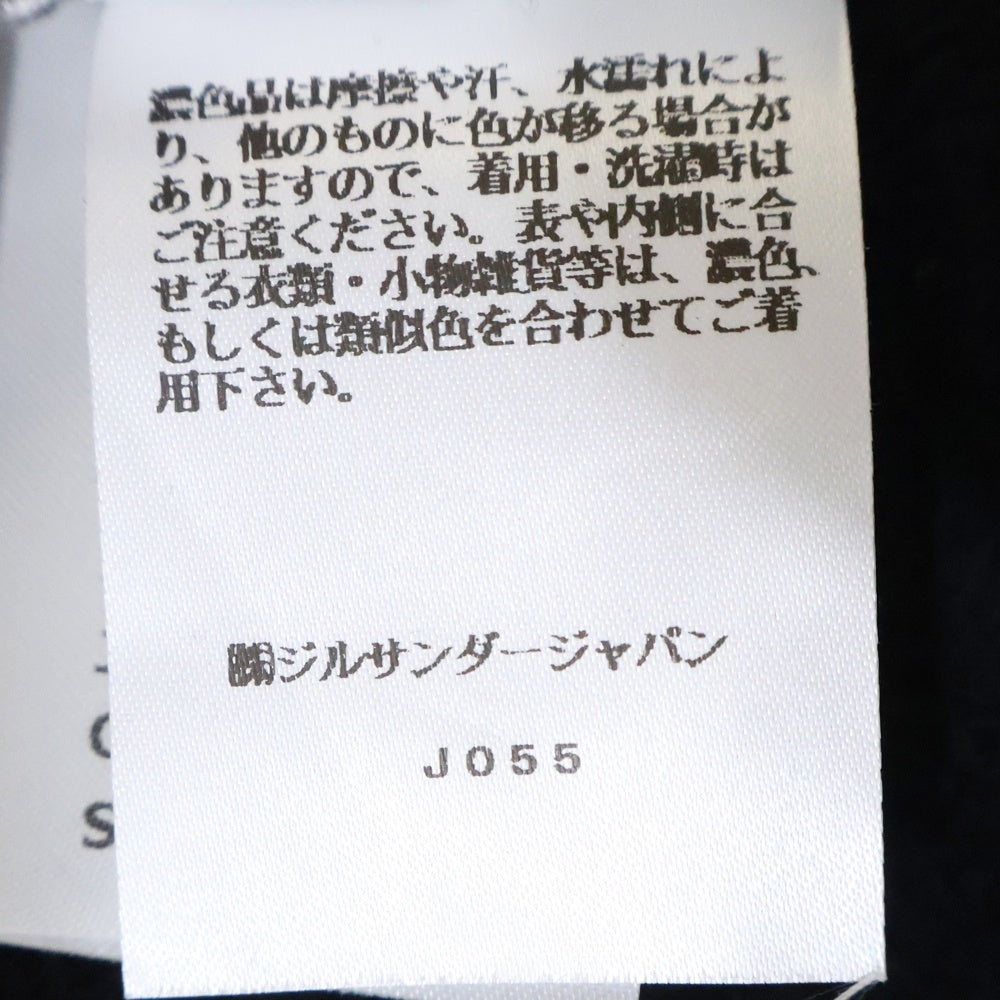 濃色品は摩擦や汗、水濡れによ
り、他のものに色が移る場合が
ありますので、着用・洗濯時は
ご注意ください。表や内側に合
せる衣類・小物雑貨等は、濃色、
もしくは類似色を合わせてご着
用下さい。
㈱ジルサンダージャパン
J055